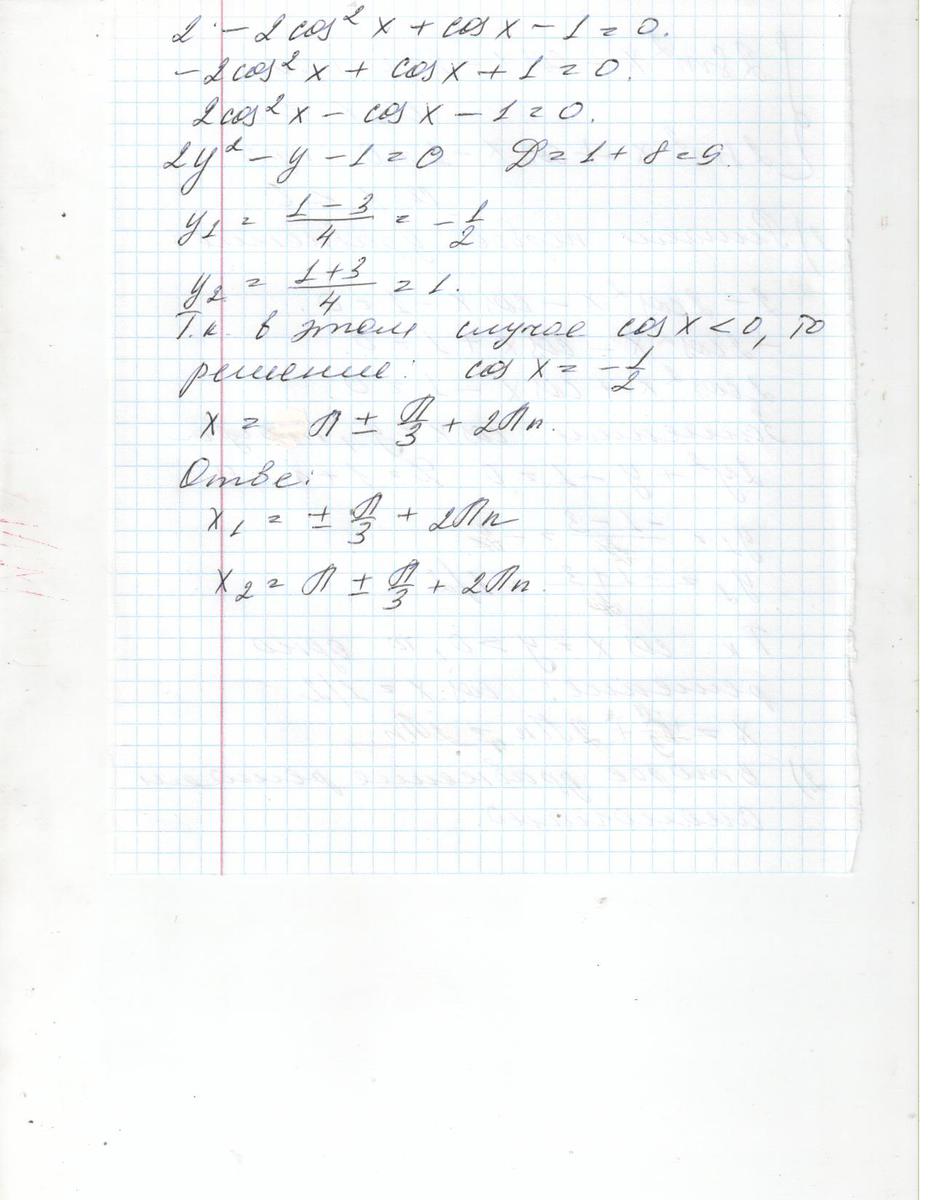 2 - 2cos² x + cos x - 1 = 0.
-2cos² x + cos x + 1 = 0.
2cos² x - cos x - 1 = 0.
2y² - y - 1 = 0 D = 1 + 8 = 9.
y₁ = (1 - 3)/4 = -1/2
y₂ = (1 + 3)/4 = 1.
Т.к. в этом случае cos x < 0, то
решение: cos x = -1/2
x = П ± П/3 + 2Пn.
Отве:
x₁ = ± П/3 + 2Пn
x₂ = П ± П/3 + 2Пn.